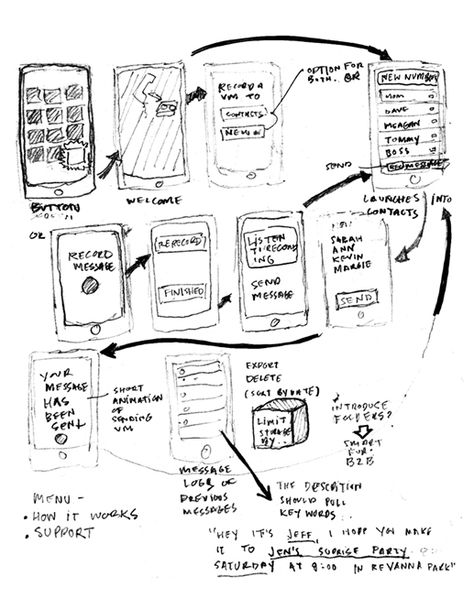 BUTTON
WELCOME
RECORD A
VM TO
CONTACTS
NEW #
OPTION FOR
BOTH.. OR
NEW NUMBER
MOM
DAVE
MEAGAN
TOMMY
BOSS
SEND
LAUNCHES INTO
CONTACTS
OR
RECORD
MESSAGE
RERECORD
FINISHED
LISTEN
TO RECORD
ING
SEND
MESSAGE
SARAH
ANN
KEVIN
MARGIE
SEND
YOUR
MESSAGE
HAS
BEEN
SENT
SHORT
ANIMATION
OF
SENDING
VM
MESSAGE
LOGS OF
PREVIOUS
MESSAGES
EXPORT
DELETE
(SORT BY DATE)
LIMIT
STORAGE
BY..
INTRODUCE
FOLDERS?
SMART
FOR
B2B
THE DESCRIPTION
SHOULD PULL
KEY WORDS..
MENU -
• HOW IT WORKS
• SUPPORT
"HEY IT'S JEFF, I HOPE YOU MAKE
IT TO JEN'S SUPRISE PARTY
SATURDAY AT 8:00 IN REVANNA PARK"